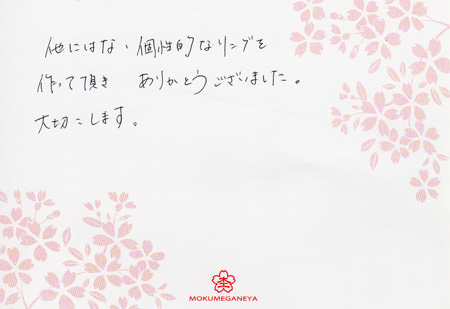 他にはない個性的なリングを
作って頂き ありがとうございました。
大切にします。
MOKUMEGANEYA